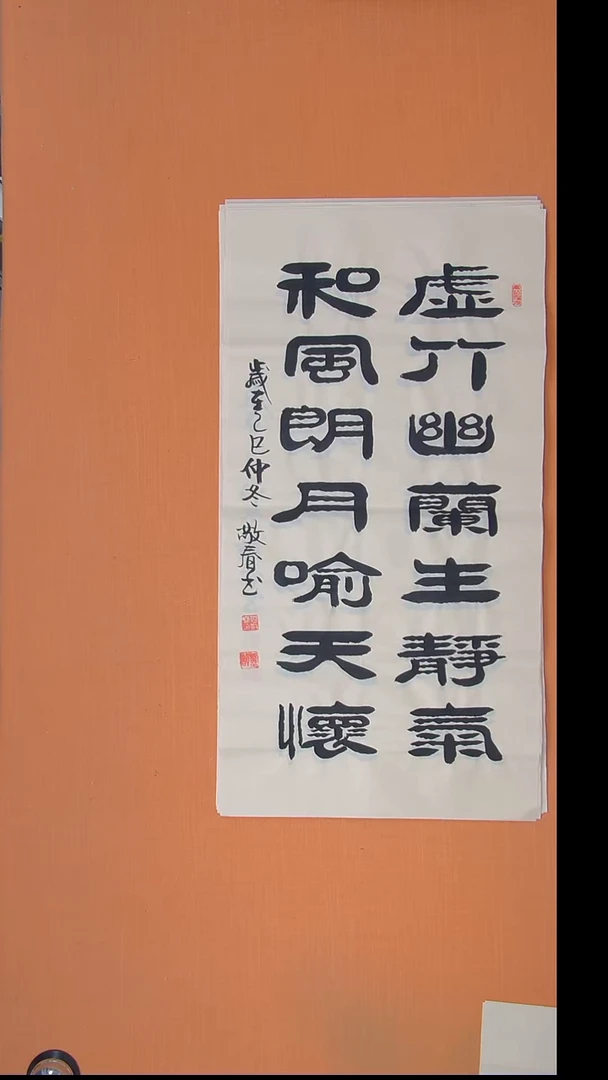 虚竹幽蘭生靜氣
和風朗月喻天懷
歲在乙巳仲冬 敬春书